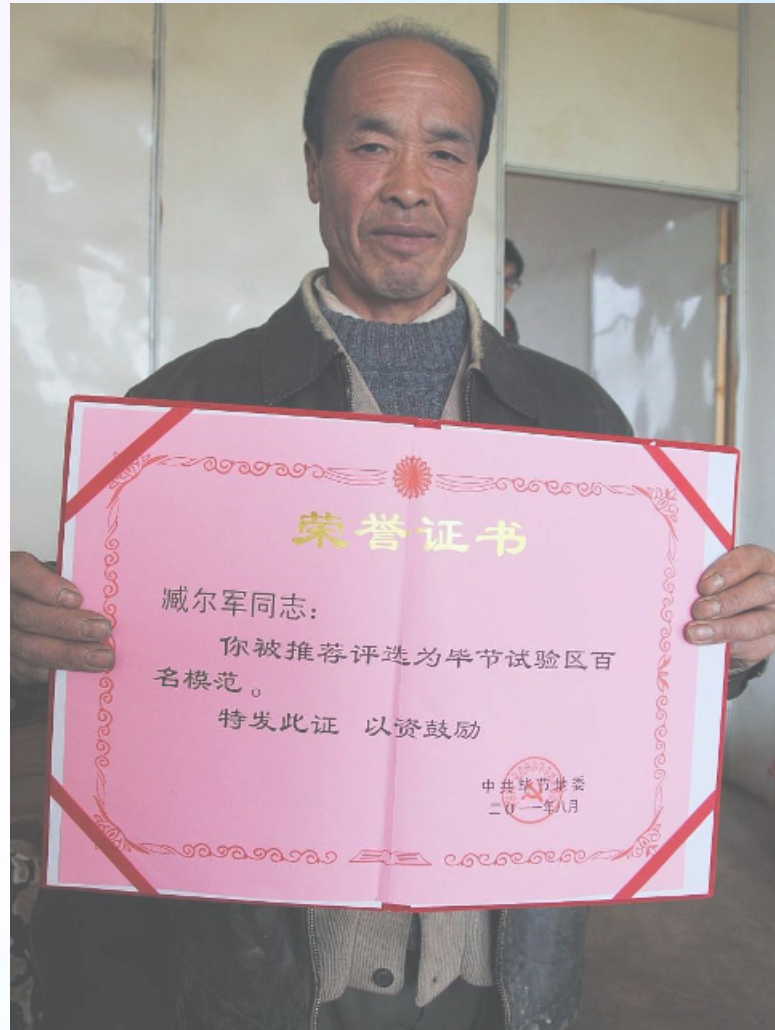 荣誉证书
臧尔军同志：
你被推荐评选为毕节试验区百
名模范。
特发此证 以资鼓励
中共毕节地委
二〇一一年八月